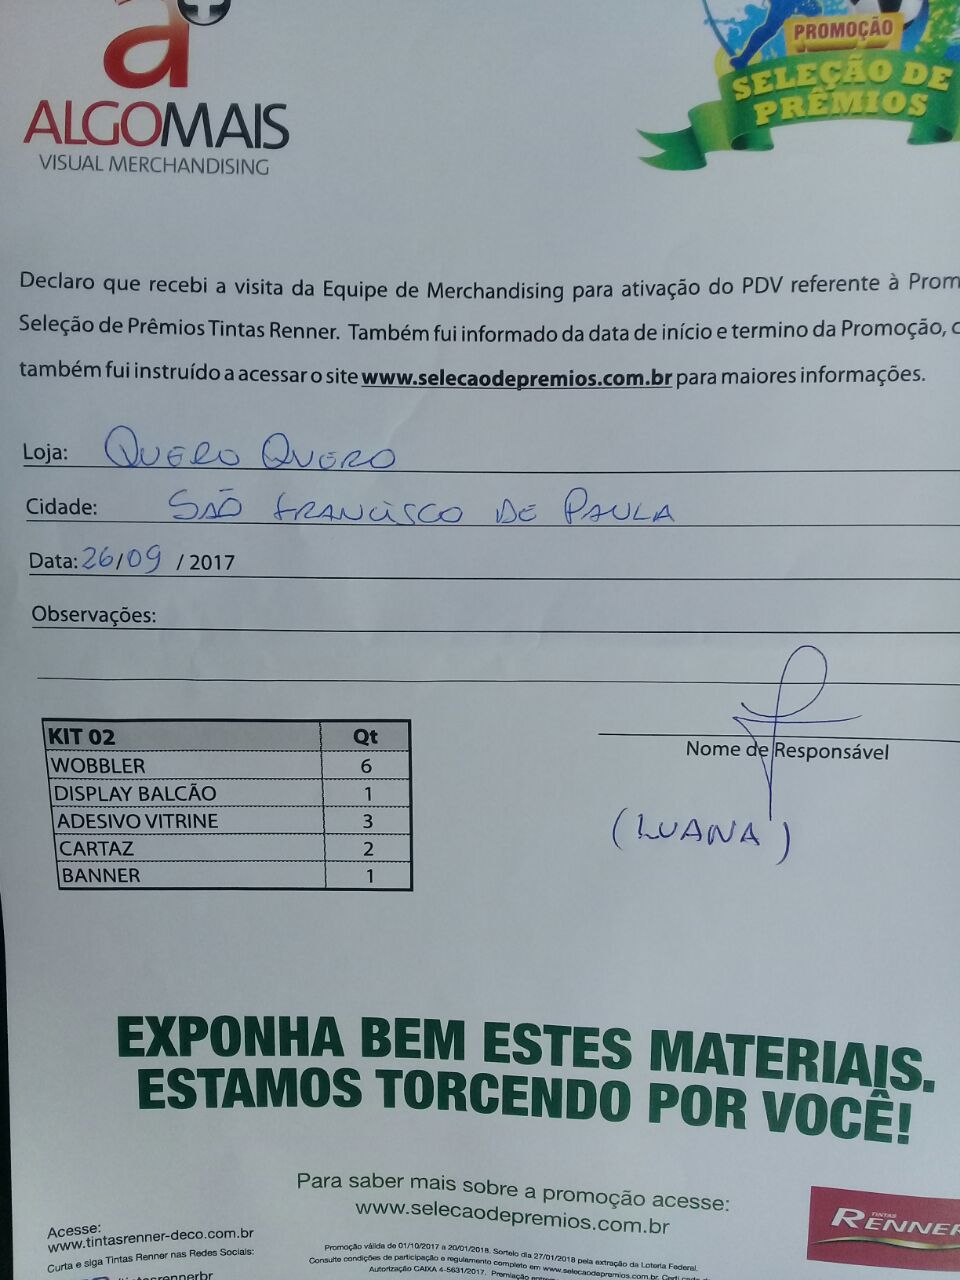 a+
ALGOMAIS
VISUAL MERCHANDISING
PROMOÇÃO
SELEÇÃO DE
PRÊMIOS
Declaro que recebi a visita da Equipe de Merchandising para ativação do PDV referente à Prom
Seleção de Prêmios Tintas Renner. Também fui informado da data de início e termino da Promoção, c
também fui instruído a acessar o site www.selecaodepremios.com.br para maiores informações.
Loja: QUERO QUERO
Cidade: SÃO FRANCISCO DE PAULA
Data: 26/09 / 2017
Observações:
KIT 02 Qt
WOBBLER 6
DISPLAY BALCÃO 1
ADESIVO VITRINE 3
CARTAZ 2
BANNER 1
Nome de Responsável
(LUANA)
EXPONHA BEM ESTES MATERIAIS.
ESTAMOS TORCENDO POR VOCÊ!
Para saber mais sobre a promoção acesse:
www.selecaodepremios.com.br
Acesse:
www.tintasrenner-deco.com.br
Curta e siga Tintas Renner nas Redes Sociais:
/tintasrennerbr
TINTAS
RENNER
Promoção válida de 01/10/2017 a 20/01/2018. Sorteio dia 27/01/2018 pela extração da Loteria Federal.
Consulte condições de participação e regulamento completo em www.selecaodepremios.com.br. Certi
Autorização CAIXA 4-5631/2017. Premiação